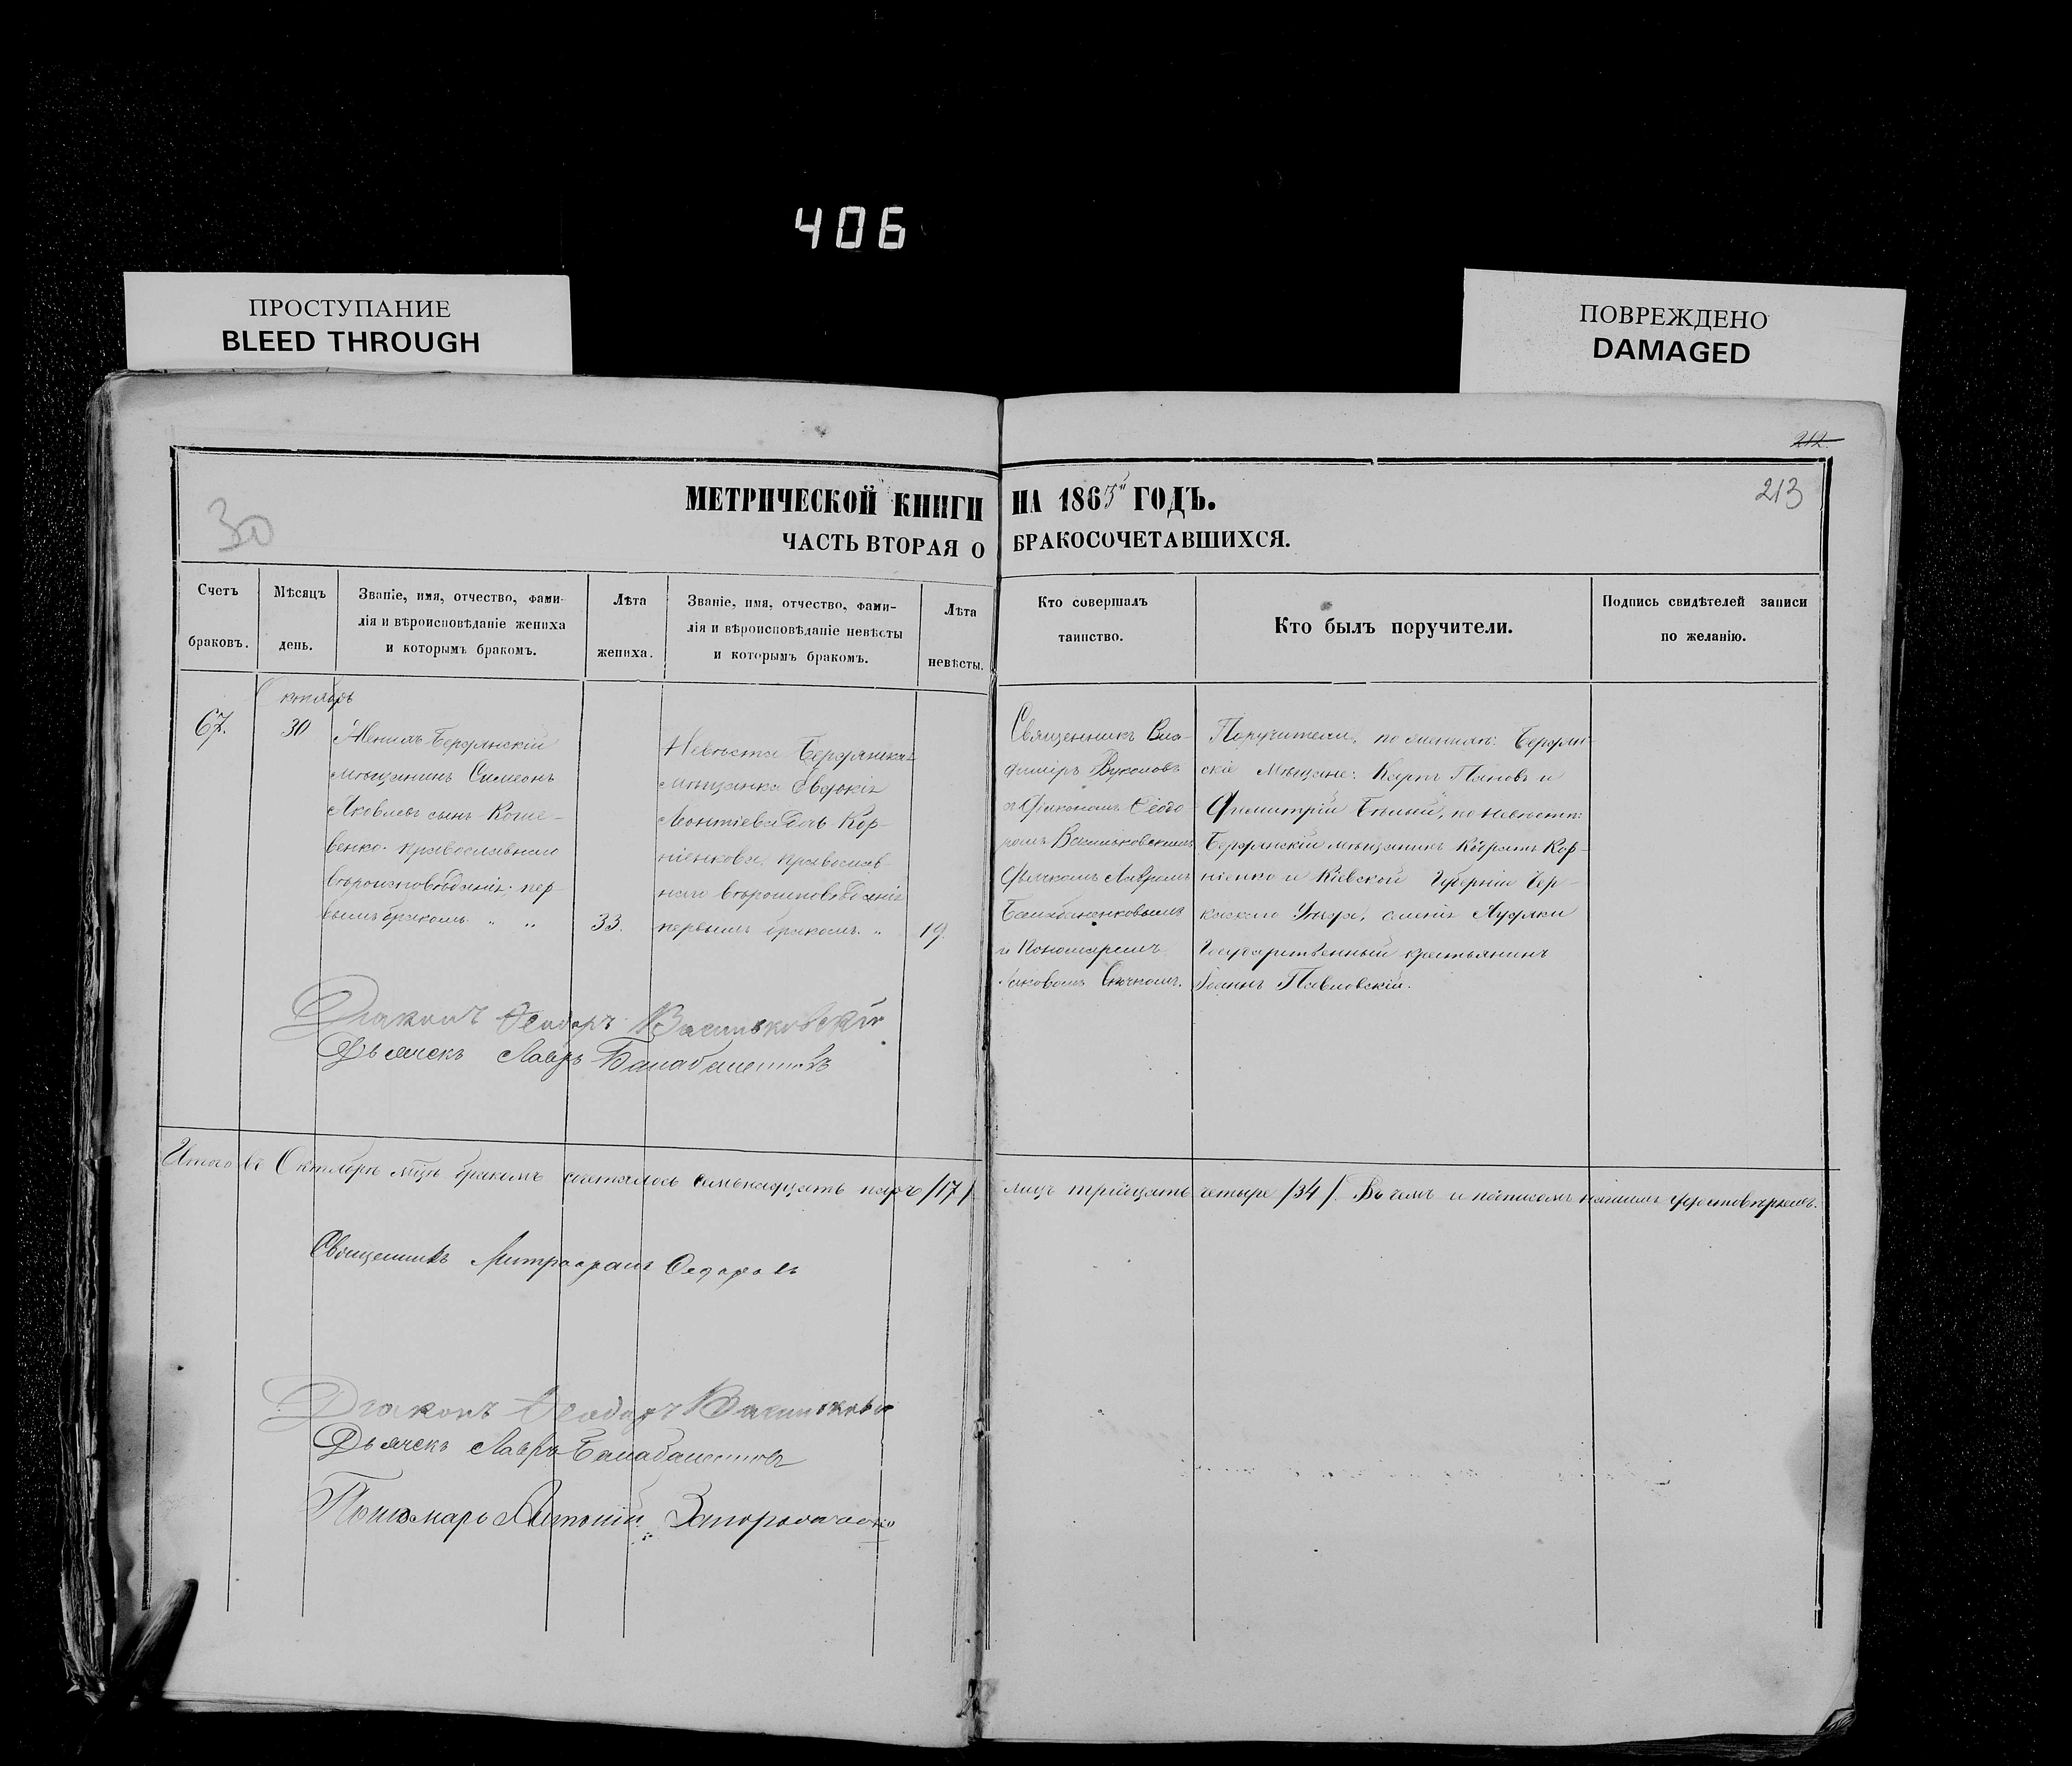 406
ПРОСТУПАНИЕ
BLEED THROUGH
ПОВРЕЖДЕНО
DAMAGED
212
213
30
МЕТРИЧЕСКОЙ КНИГИ НА 1865 ГОДЪ.
ЧАСТЬ ВТОРАЯ О БРАКОСОЧЕТАВШИХСЯ.
Счетъ браковъ.
Мѣсяцъ день.
Званіе, имя, отчество, фами-
лія и вѣроисповѣданіе жениха
и которымъ бракомъ.
Лѣта жениха.
Званіе, имя, отчество, фами-
лія и вѣроисповѣданіе невѣсты
и которымъ бракомъ.
Лѣта невѣсты.
Кто совершалъ
таинство.
Кто былъ поручители.
Подпись свидѣтелей записи
по желанію.
Октябрь
67.
30
Женихъ Бердянскій
мѣщанинъ Симеонъ
Яковлевъ сынъ Коше-
венко. православнаго
вѣроисповѣданія. пер-
вымъ бракомъ. „ „
33.
Невѣста Бердянская
мѣщанка Евдокія
Леонтіева дочь Кор-
ніенкова, православ-
наго вѣроисповѣданія
первымъ бракомъ. „
19.
Священникъ Вла-
диміръ Вуколовъ
съ Діакономъ Ѳеодо-
ромъ Васильковскимъ
Дьячкомъ Лавромъ
Балабаненковымъ
и Пономаремъ
Яковомъ
Поручители, по женихѣ: Бердян-
скіе Мѣщане: Карпъ Пановъ и
Димитрій Бѣлый, по невѣстѣ:
Бердянскій мѣщанинъ Кодратъ Кор-
ніенко и Кіевской Губерніи Чер-
касскаго Уѣзда, Государственный крестьянинъ
Іоаннъ Павловскій.
Діаконъ Ѳеодоръ Васильковскій
Дьячекъ Лавръ Балабаненковъ
Итого въ Октябрѣ мцѣ бракомъ сочеталось семьнадцать паръ /17/ лицъ тридцать четыре /34/. Въ чемъ и подписомъ нашимъ удостовѣряемъ.
Священникъ Митрофанъ Ѳедоровъ
Діаконъ Ѳеодоръ Васильковскій
Дьячекъ Лавръ Балабаненковъ
Пономарь Антоній